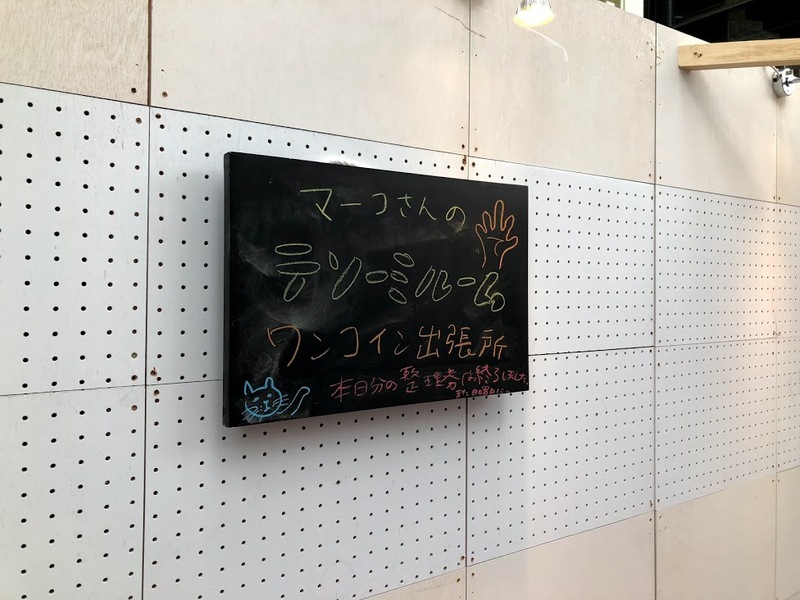 マーコさんの
テソーミルーム
ワンコイン出張所
本日分の整理券は終了しました。
また日曜日に